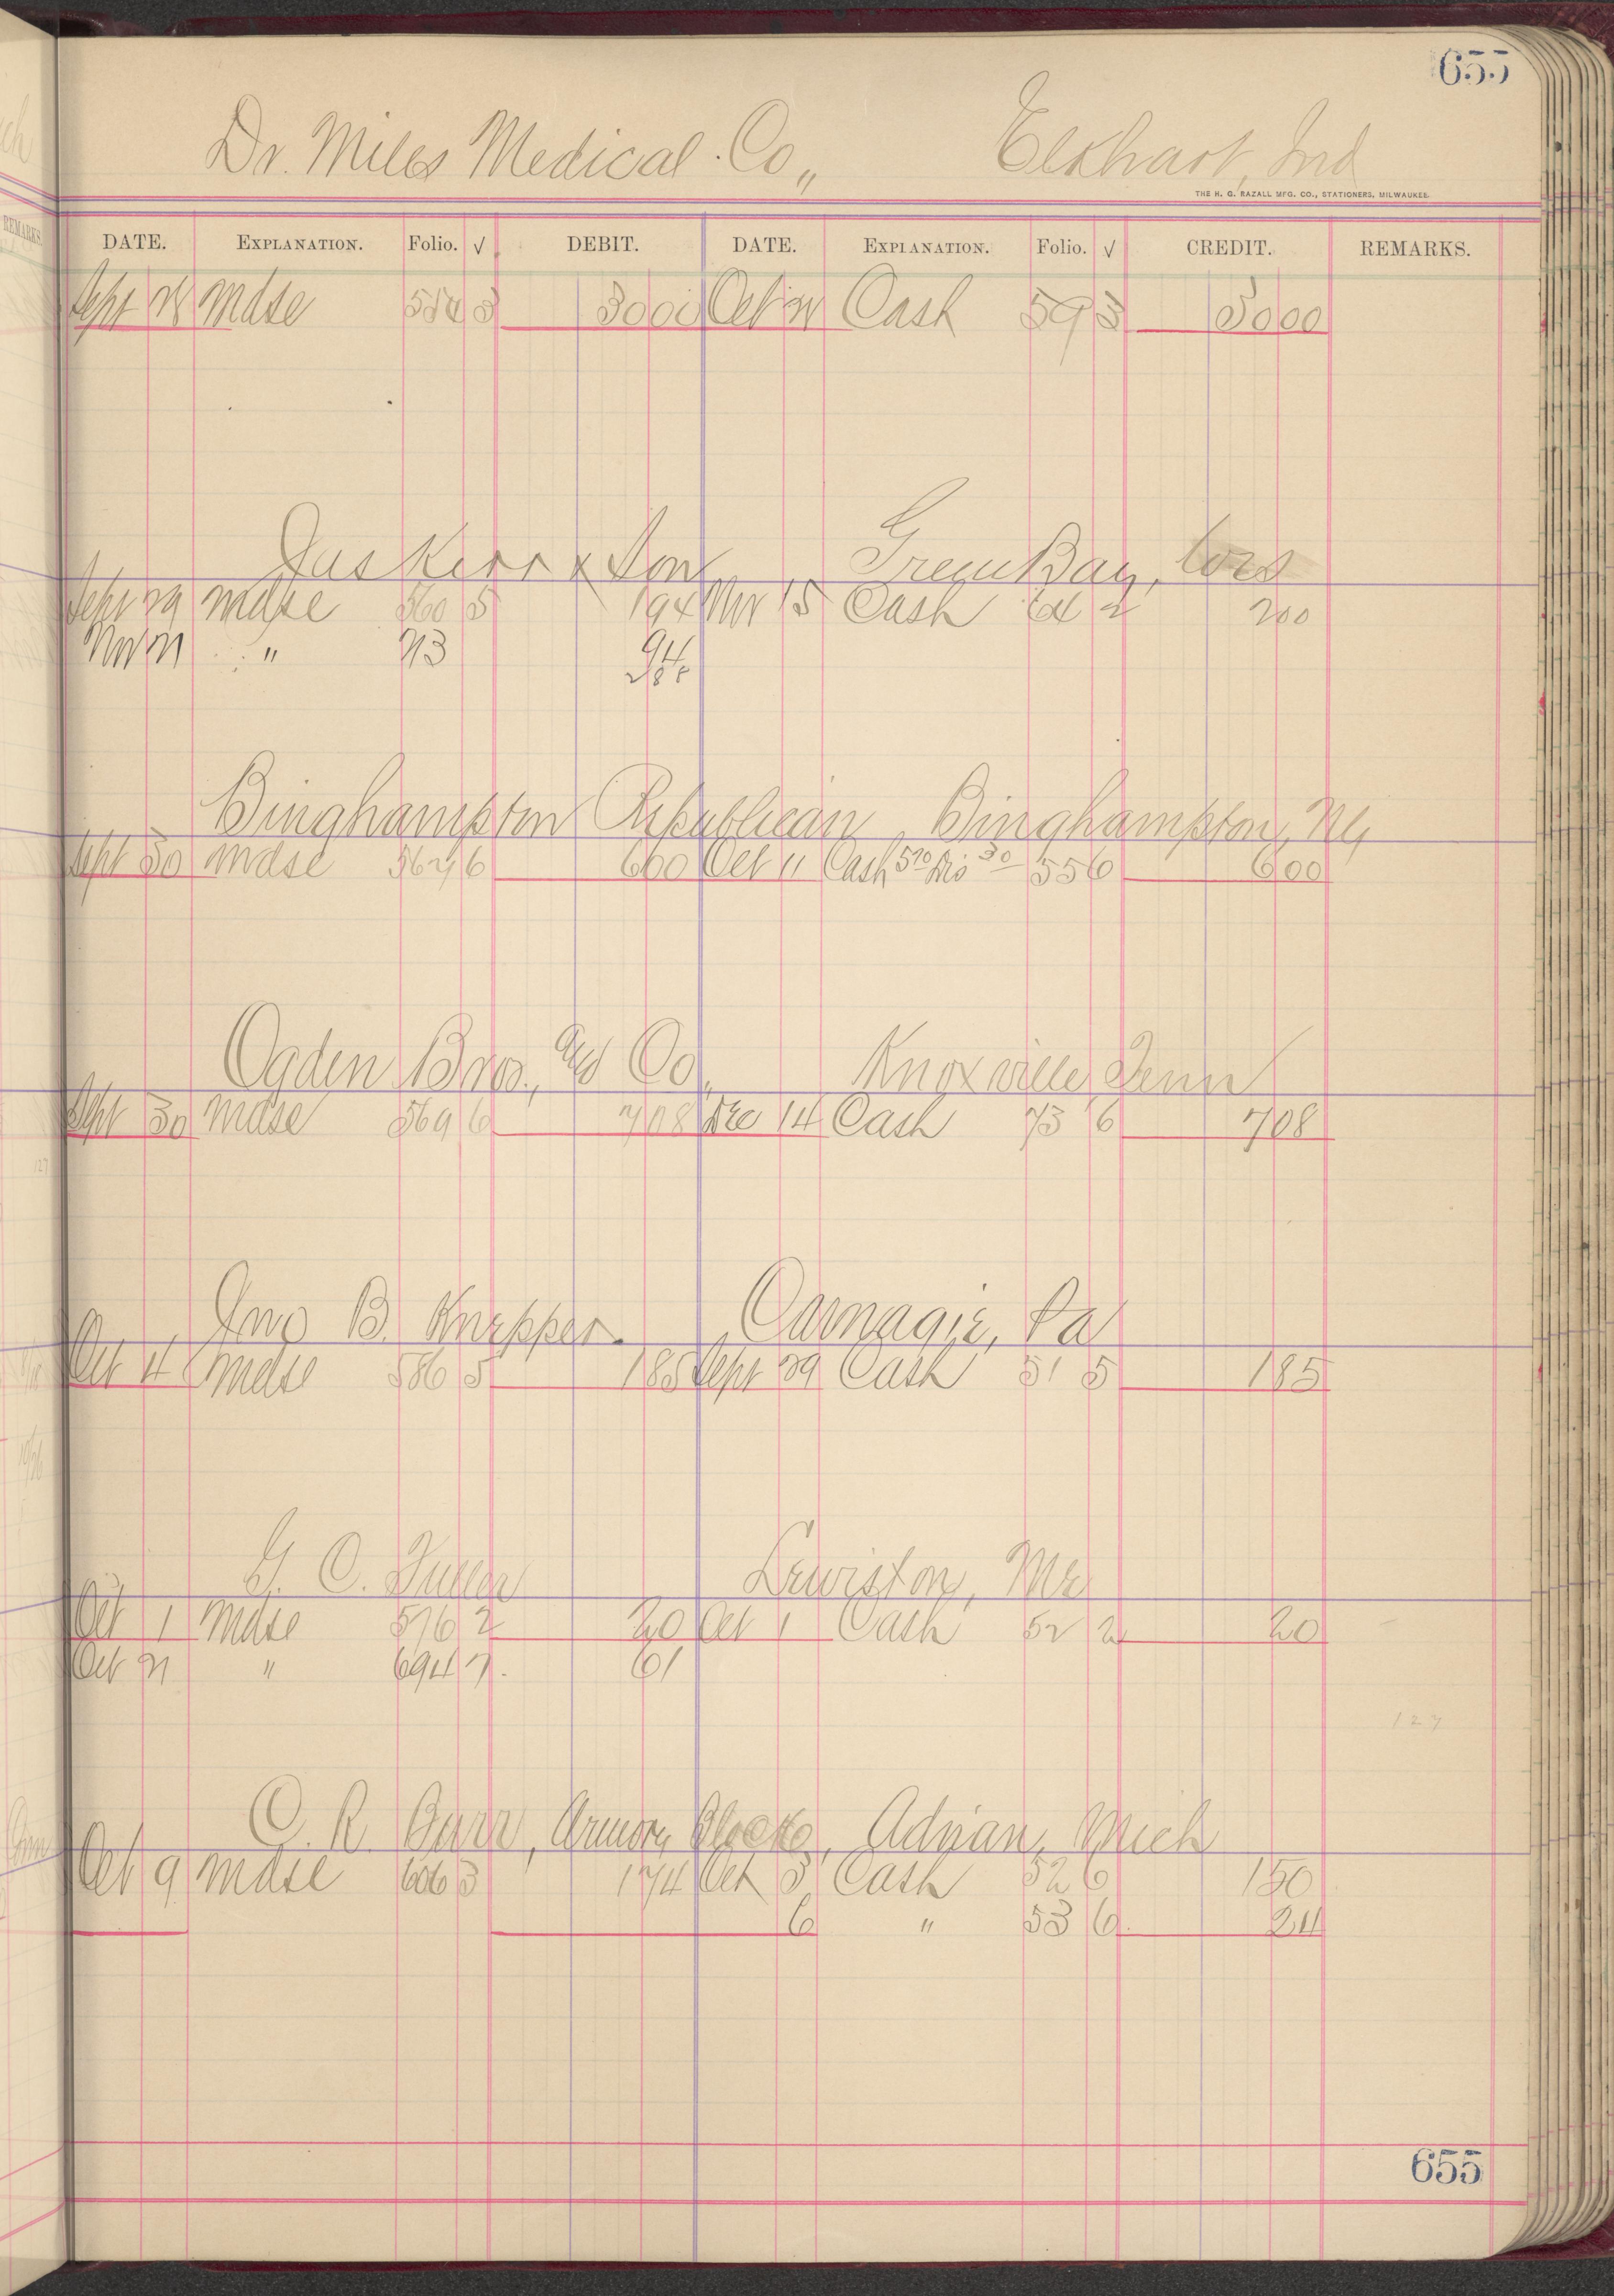 655
Dr. Miles Medical Co,, Elkhart, Ind
THE H. G. RAZALL MFG. CO., STATIONERS, MILWAUKEE.
DATE. EXPLANATION. Folio. √ DEBIT. DATE. EXPLANATION. Folio. √ CREDIT. REMARKS.
Sept 28 Mdse 554 3 3000 Oct 21 Cash 59 3 3000
Jas Kerr & Son Green Bay, Wis
Sept 29 Mdse 560 5 194 Nov 15 Cash 64 2 200
Nov 21 " 713 94
288
Binghampton Republican, Binghampton, NY
Sept 30 Mdse 567 6 600 Oct 11 Cash 5% Dis 30 55 6 600
Ogden Bros., and Co, Knoxville Tenn
Sept 30 Mdse 569 6 708 Dec 14 Cash 73 6 708
Jno B. Knepper. Carnagie, Pa
Oct 4 Mdse 586 5 185 Sept 29 Cash 51 5 185
G. C. Fuller Lewiston, Me
Oct 1 Mdse 576 2 20 Oct 1 Cash 52 2 20
Oct 21 " 694 7. 61
127
C. R. Burr, Armory Block, Adrian, Mich
Oct 9 Mdse 606 3 174 Oct 3 Cash 52 6 150
6 " 53 6 24
655